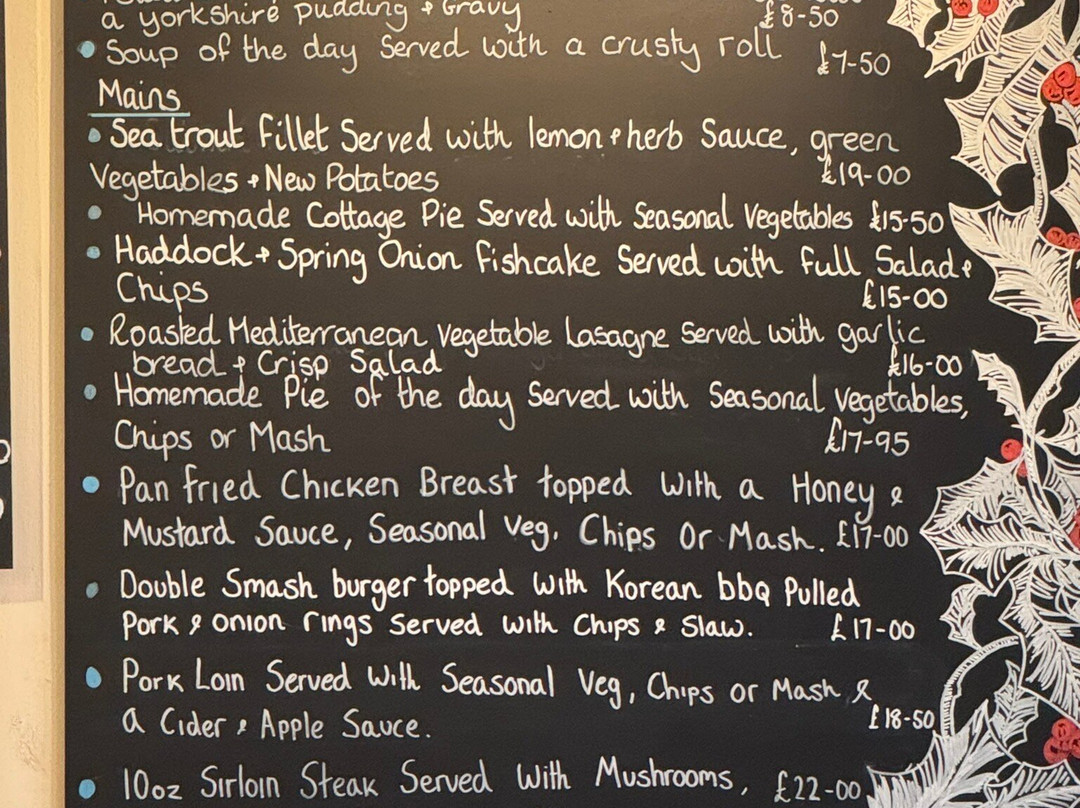 a yorkshire pudding + Gravy £8-50
Soup of the day Served with a crusty roll £7-50
Mains
Sea trout fillet Served with lemon + herb Sauce, green
Vegetables + New Potatoes £19-00
Homemade Cottage Pie Served with Seasonal Vegetables £15-50
Haddock + Spring Onion fishcake Served with full Salad +
Chips £15-00
Roasted Mediterranean vegetable Lasagne Served with garlic
bread + Crisp Salad £16-00
Homemade Pie of the day Served with Seasonal vegetables,
Chips or Mash £17-95
Pan fried Chicken Breast topped with a Honey &
Mustard Sauce, Seasonal Veg, Chips Or Mash. £17-00
Double Smash burger topped with Korean bbq Pulled
Pork & onion rings Served with Chips & Slaw. £17-00
Pork Loin Served With Seasonal Veg, Chips or Mash &
a Cider & Apple Sauce. £18-50
10oz Sirloin Steak Served With Mushrooms, £22-00